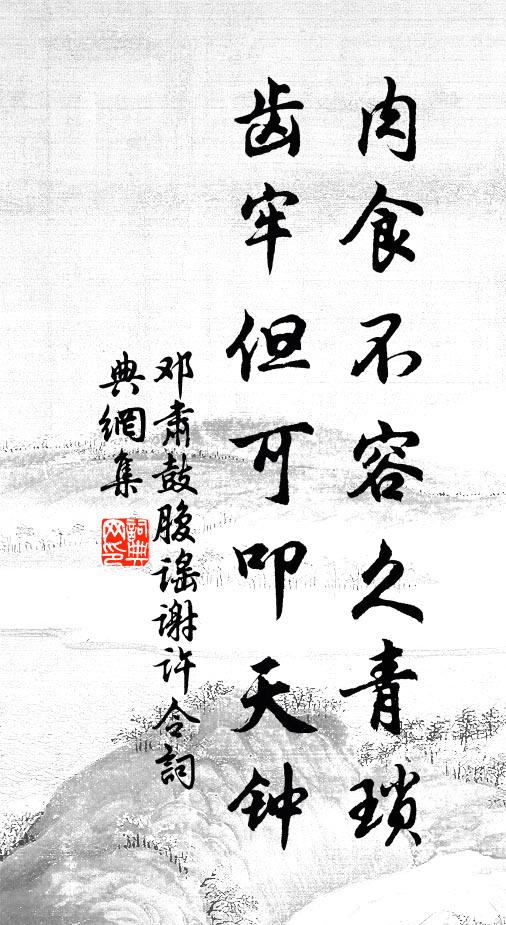 肉食不容久青琐
齿牢但可叩天钟
邓肃鼓腹谣谢许令詞
典網集
詞典网印